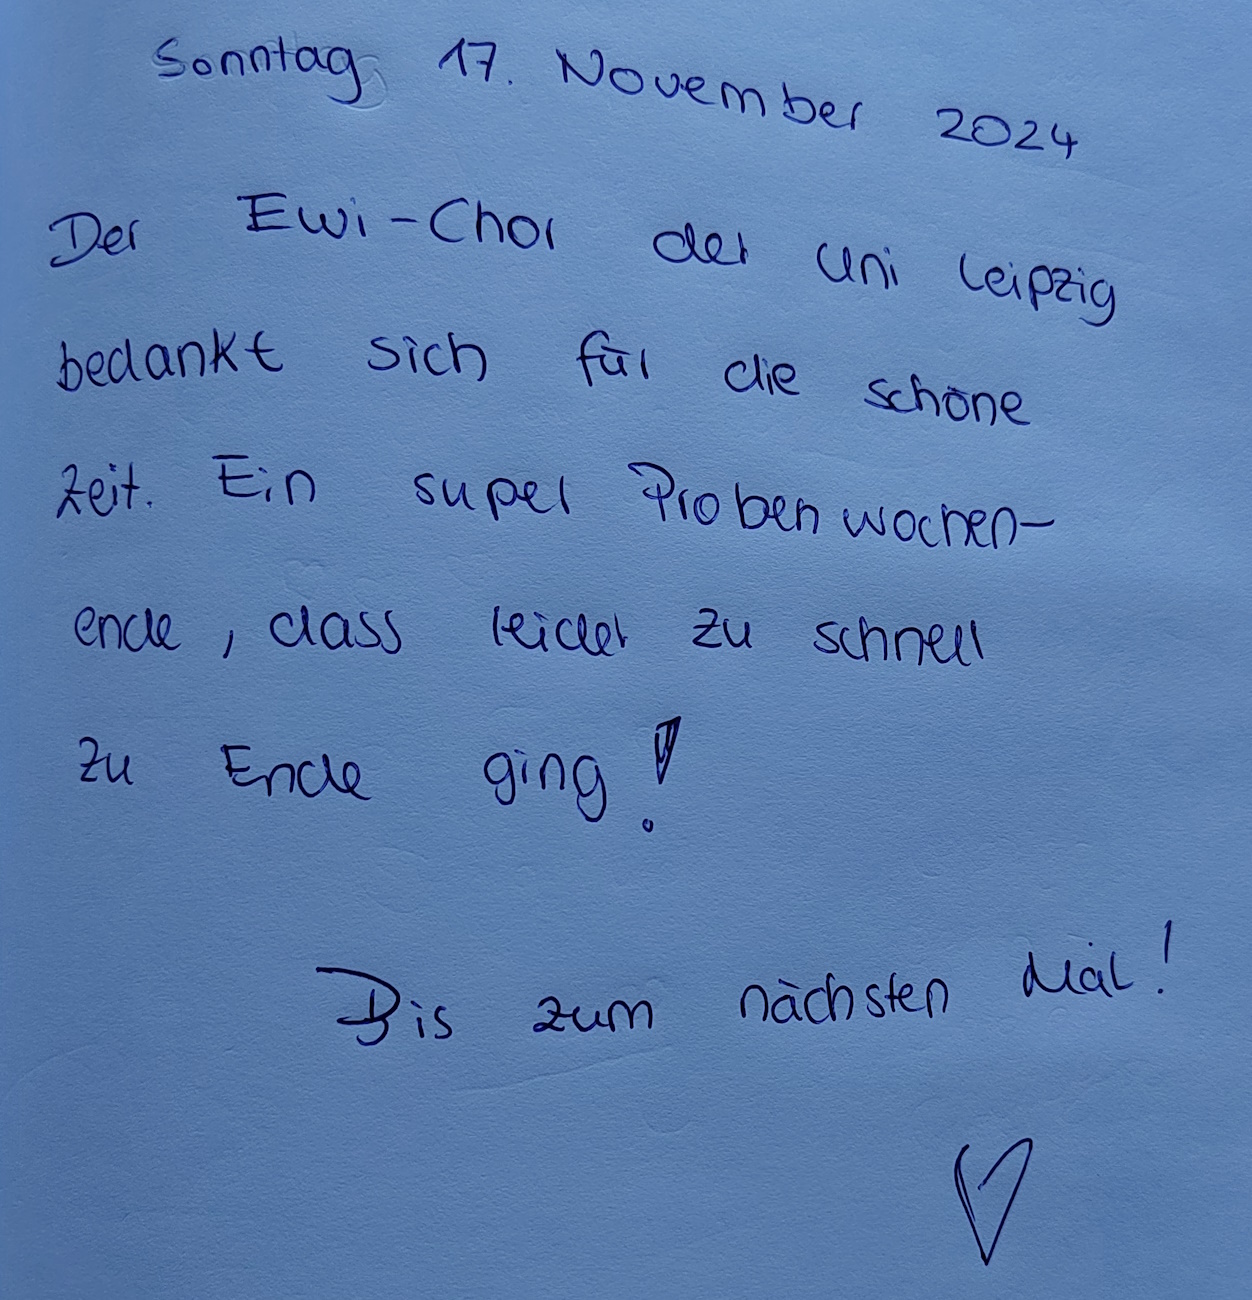 Sonntag, 17. November 2024
Der Ewi-Chor der Uni Leipzig
bedankt sich für die schöne
Zeit. Ein super Probenwochen-
ende, dass leider zu schnell
zu Ende ging!
Bis zum nächsten Mal!